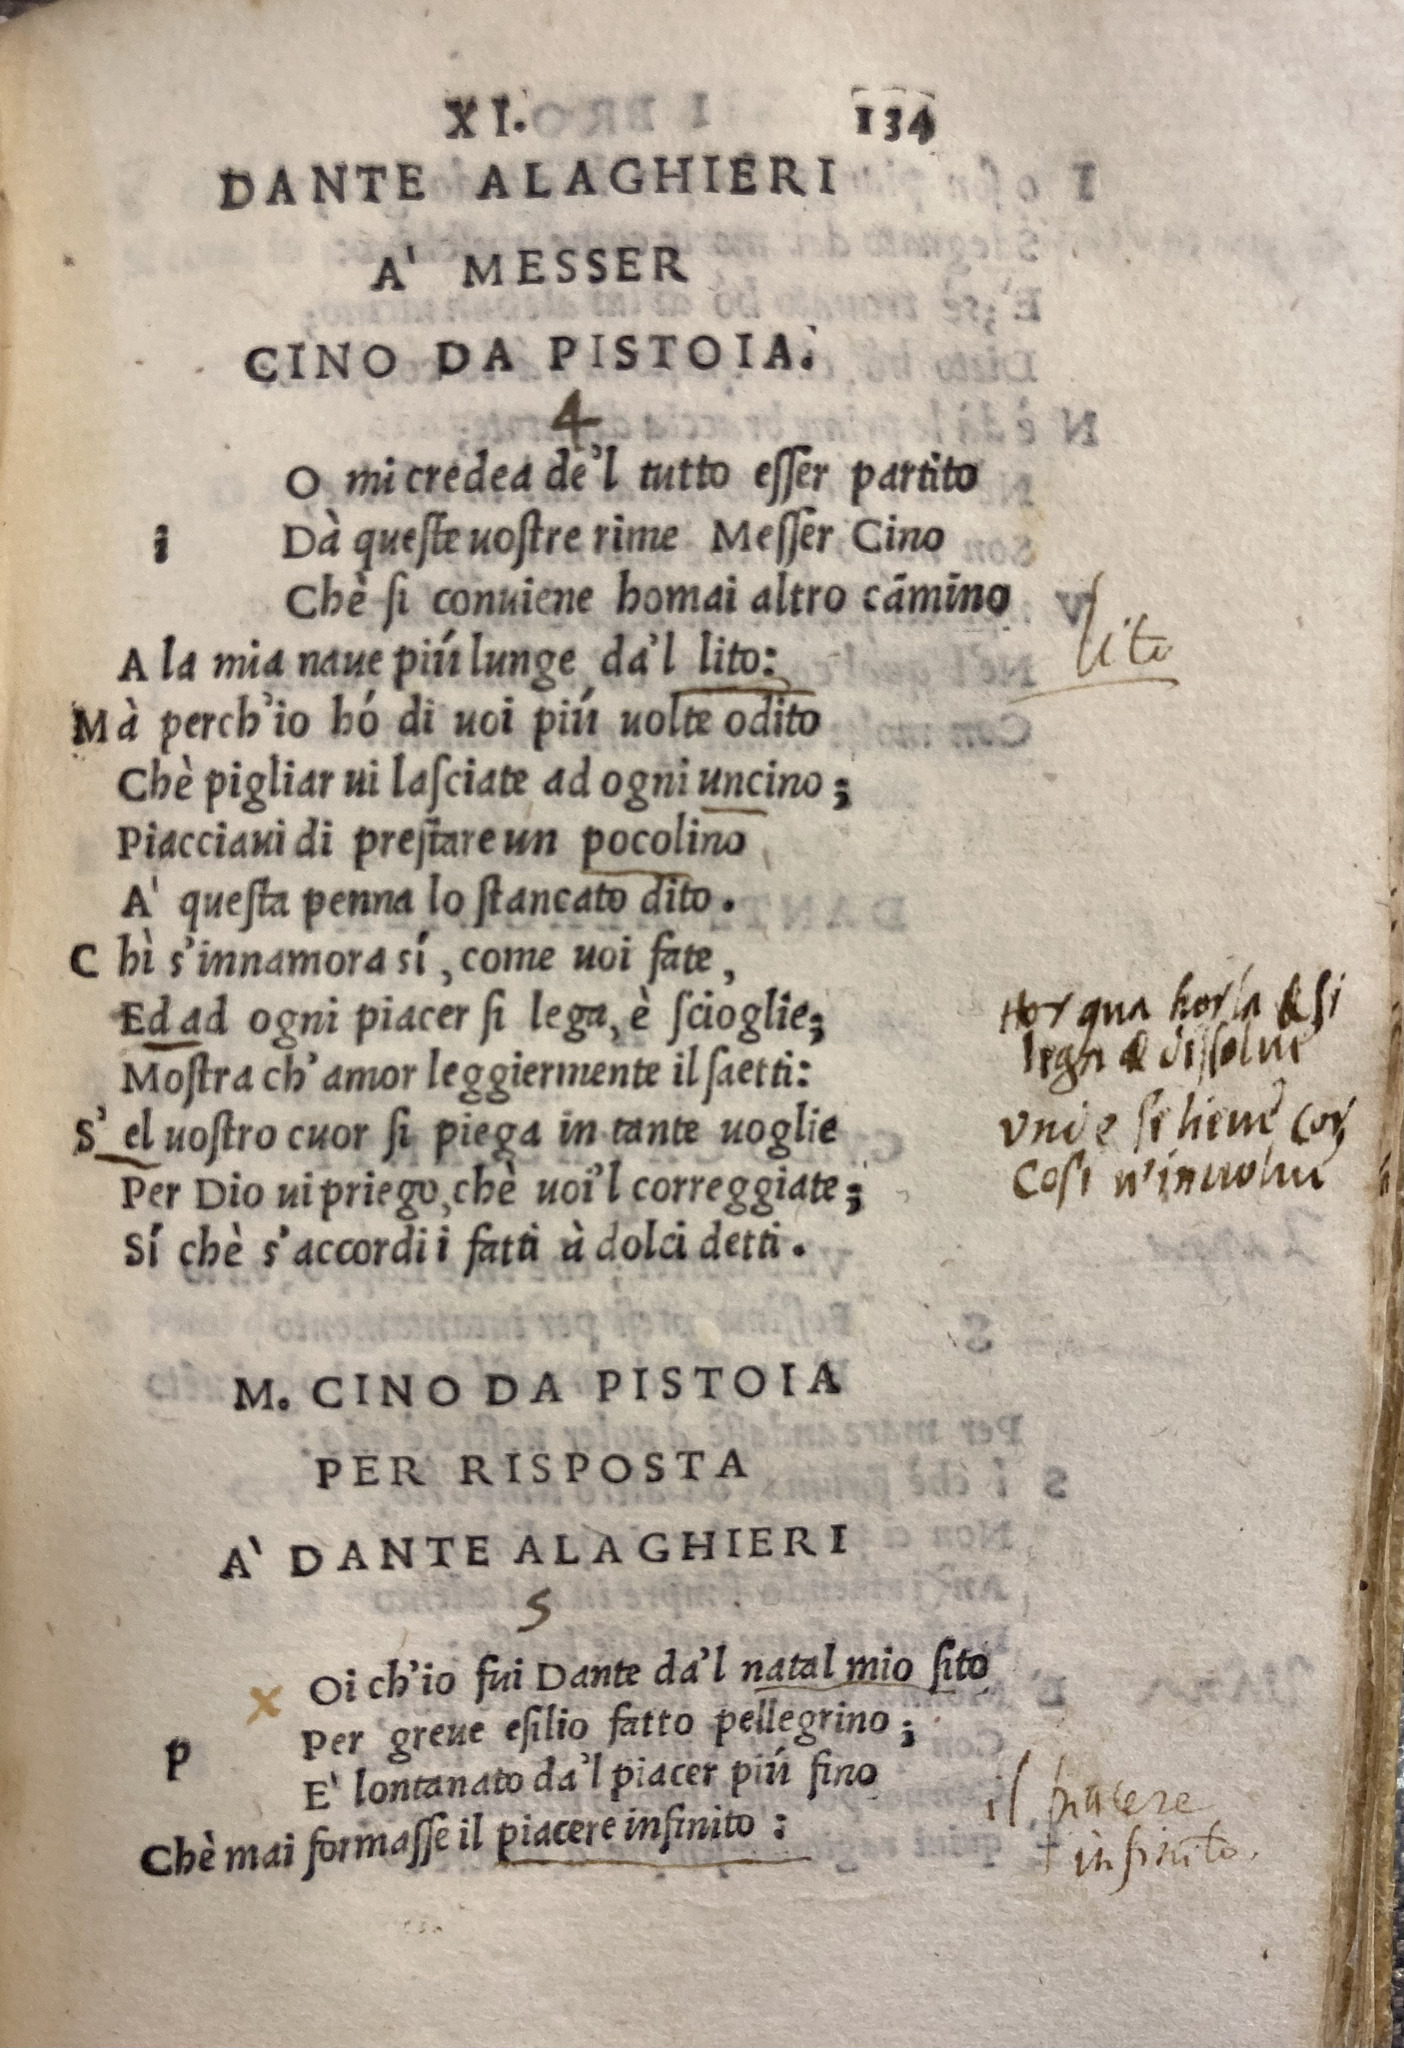 XI. 134
DANTE ALAGHIERI
A' MESSER
CINO DA PISTOIA.
4
O mi credea de'l tutto esser partito
i Dà queste uostre rime Messer Cino
Chè si conuiene homai altro cãmino
A la mia naue piú lunge da'l lito:
lito
Mà perch'io hó di uoi piú uolte odito
Chè pigliar ui lasciate ad ogni uncino;
Piacciaui di prestare un pocolino
A' questa penna lo stancato dito.
Chì s'innamora sí, come uoi fate,
Ed ad ogni piacer si lega, è scioglie;
Mostra ch'amor leggiermente il saetti:
S'el uostro cuor si piega in tante uoglie
Per Dio ui priego, chè uoi'l correggiate;
Sí chè s'accordi i fatti à dolci detti.
Hor qua hor la & si
lega & dissolue
Cosi
M. CINO DA PISTOIA
PER RISPOSTA
A' DANTE ALAGHIERI
5
x Oi ch'io fui Dante da'l natal mio sito
p Per greue esilio fatto pellegrino;
E' lontanato da'l piacer piú fino
Chè mai formasse il piacere infinito:
il piacere
infinito.